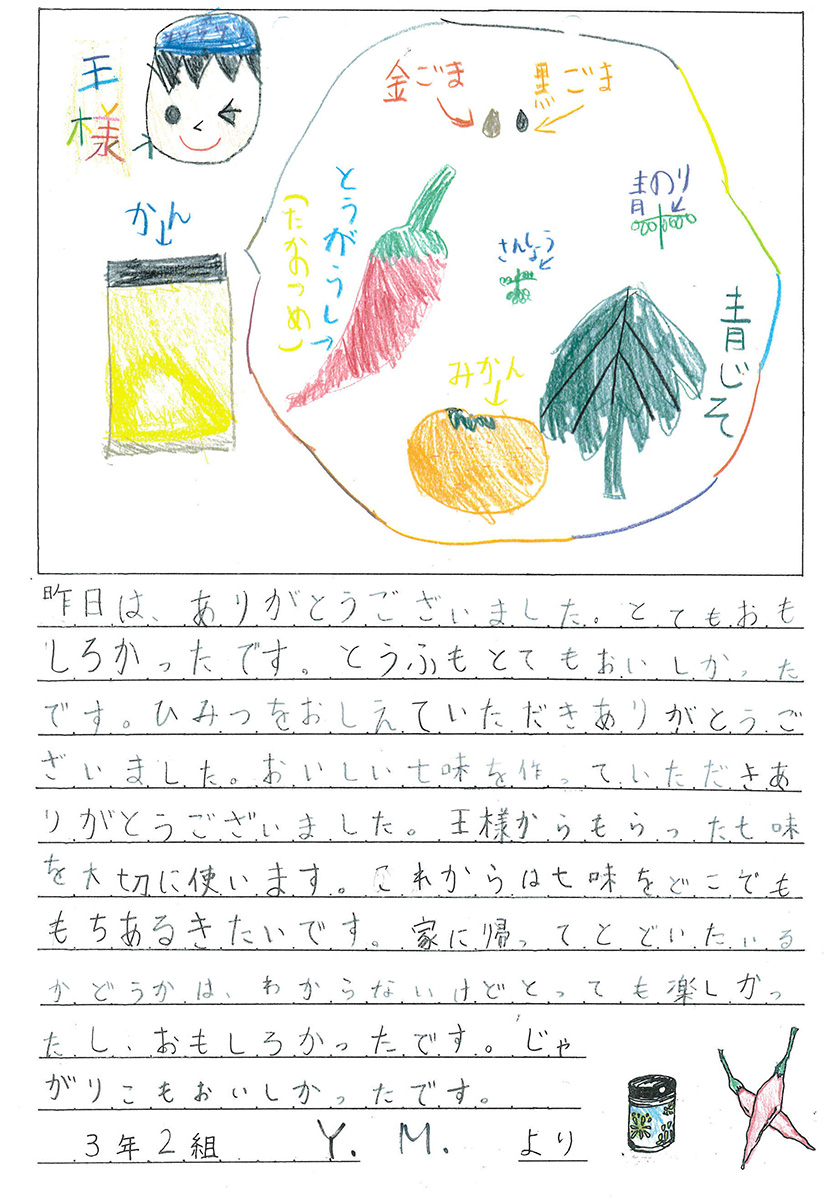 王様
金ごま
黒ごま
かん
とうがらし
(たかのつめ)
青のり
さんしょう
青じそ
みかん
昨日は、ありがとうございました。とてもおも
しろかったです。とうふもとてもおいしかった
です。ひみつをおしえていただきありがとうご
ざいました。おいしい七味を作っていただきあ
りがとうございました。王様からもらった七味
を大切に使います。これからは七味をどこでも
もちあるきたいです。家に帰ってとどいたいる
かどうかは、わからないけどとっても楽しかっ
たし、おもしろかったです。じゃ
がりこもおいしかったです。
3年2組 Y. M. より